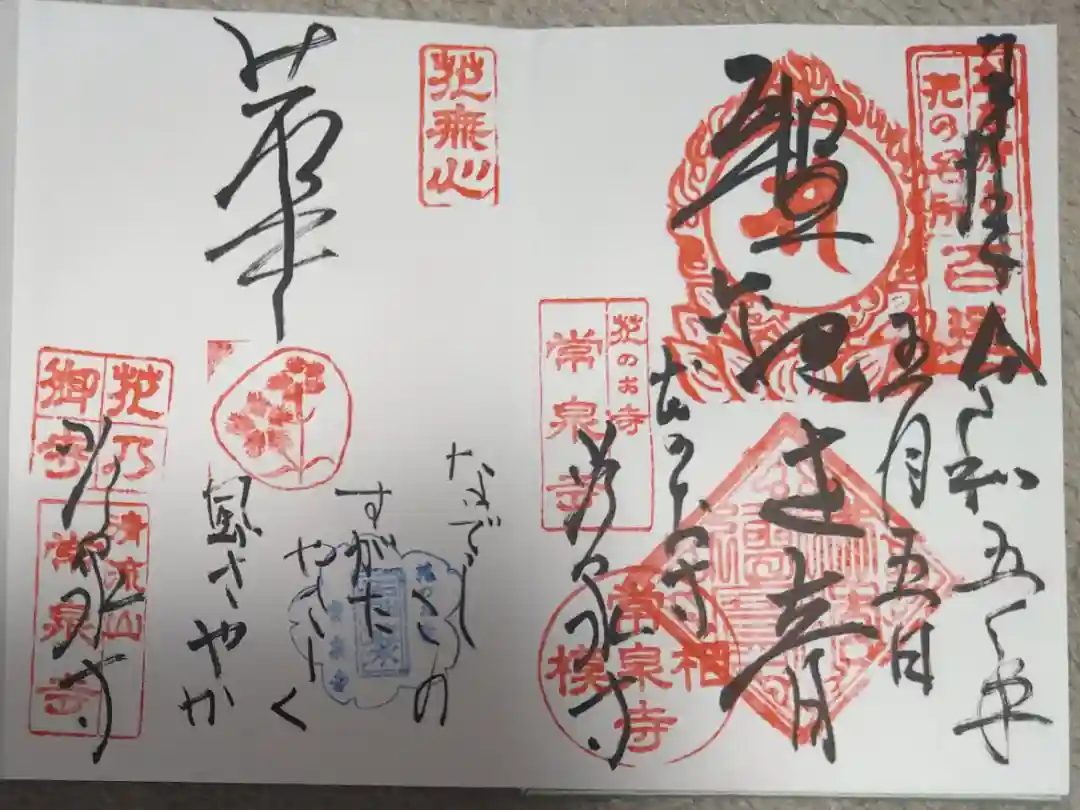 令和五年
五月五日
聖観世音
花の名所
百選
花のお寺
常泉寺
花のお寺
常泉寺
相模
常泉寺
花無心
華
なでしこの
すがた
やさしく
風さやか
花乃
御寺
清流山
常泉寺
常泉寺